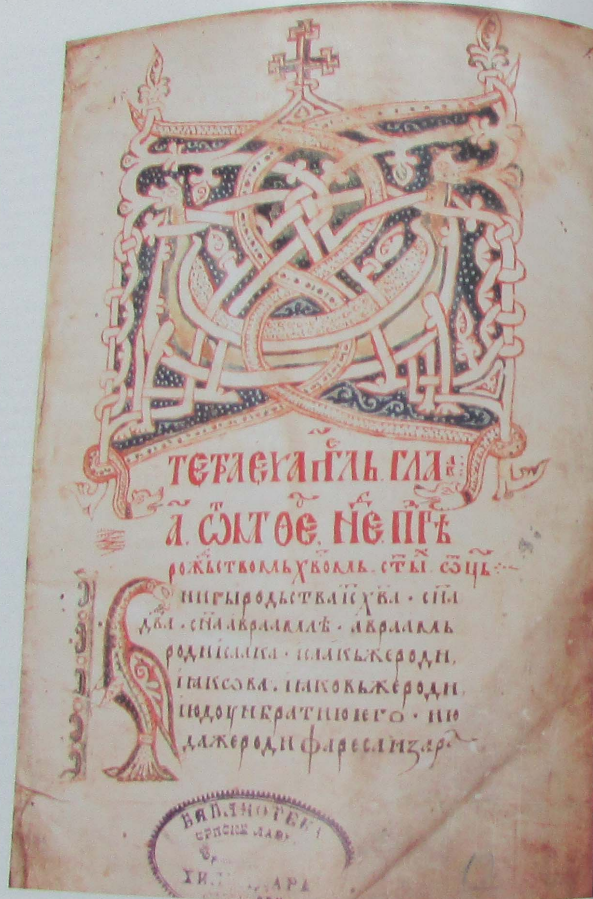 ТЕТРАЕѴАГ҃ГЛЬ. ГЛА
А҃. Ѿ МТѲЕ. НЕ ПРѢ
рож҃ьствомь х҃вомь. ст҃ых ѡц҃ь
Книгы родьства іс҃ х҃ва · сн҃а
дв҃а · сн҃а авраамлѣ · авраамь
роди ісаака · исаакь же роди,
іакѡва. іаковь же роди,
іюдоу и братию ѥго · ию
да же роди фареса и зара
БИБЛИОТЕКА
СРПСКЕ ЛАВР
ХИЛАНДАРА